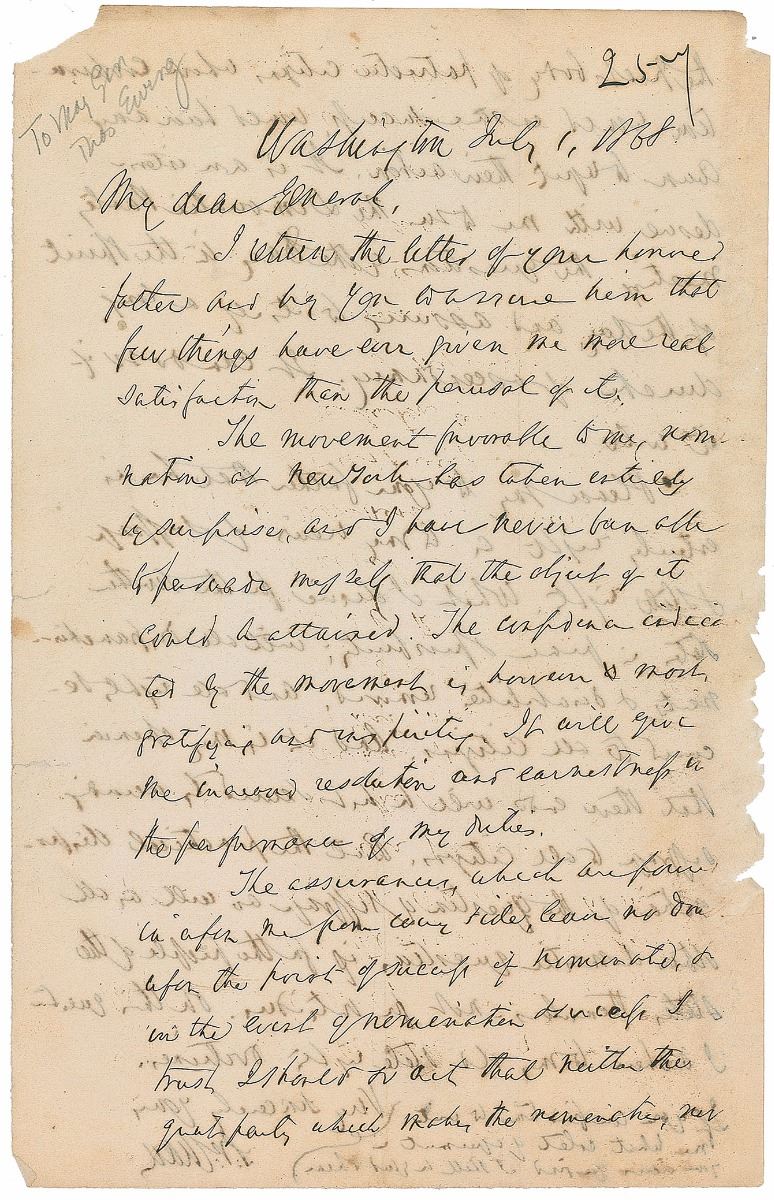 257
To Maj Gen
Thos Ewing
Washington July 1, 1868
My dear General,
I return the letter of your honored
father and beg you to assure him that
few things have ever given me more real
satisfaction than the perusal of it.
The movement favorable to my nomi-
nation at New York has taken entirely
by surprise, and I have never been able
to persuade myself that the object of it
could be attained. The confidence indica
ted by the movement is however most
gratifying and inspiriting. It will give
me increased resolution and earnestness in
the performance of my duties.
The assurances, which are pour
in upon me from every side, leave no dou
upon the point of success if nominated, &
in the event of nomination & success I
trust I should so act that neither the
great party which makes the nomination, nor